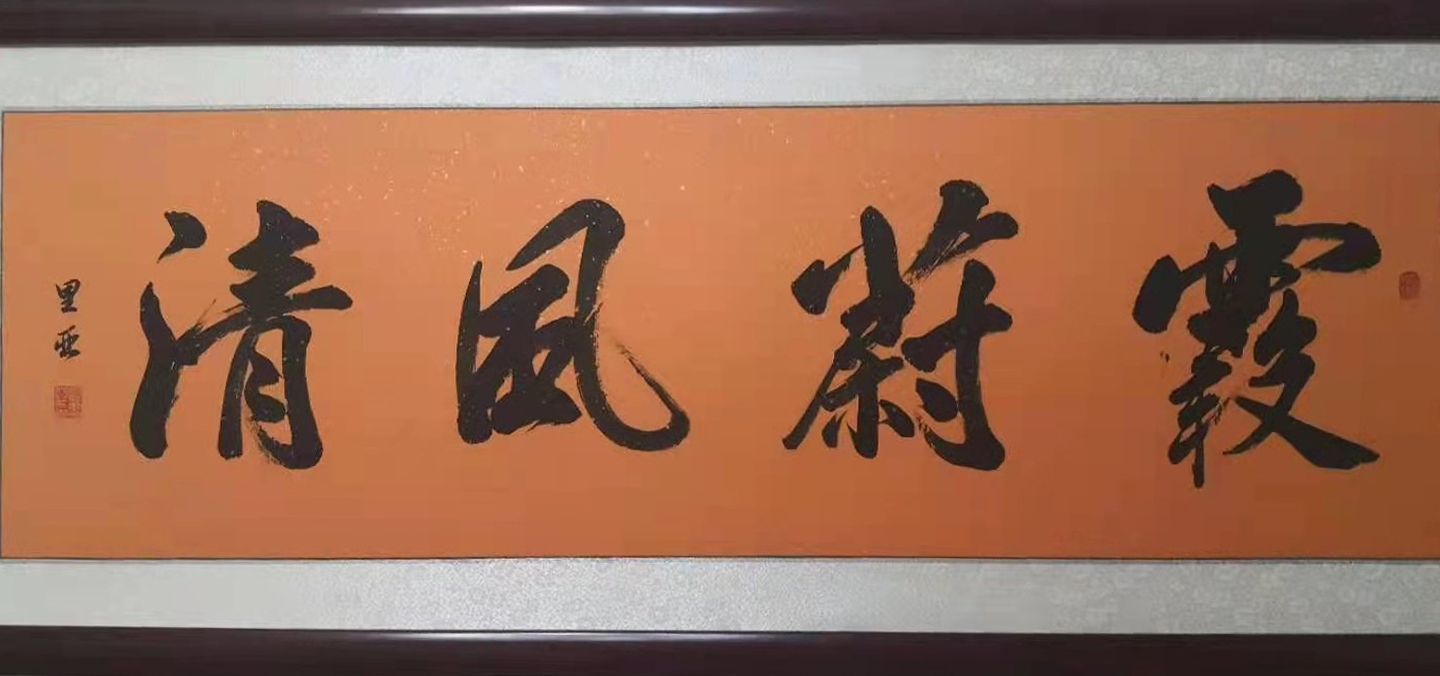 霞蔚風清
里亚